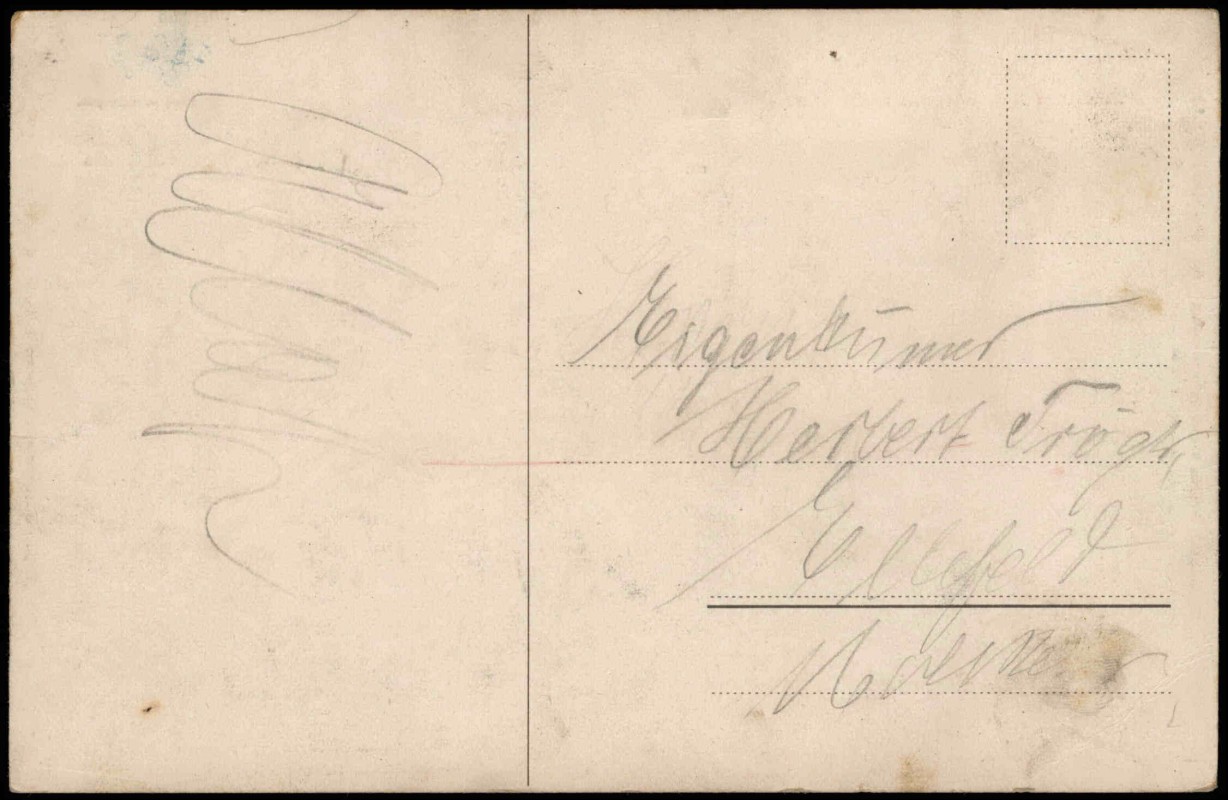 Eigentümer
Herbert Trögr,
Ellefeld